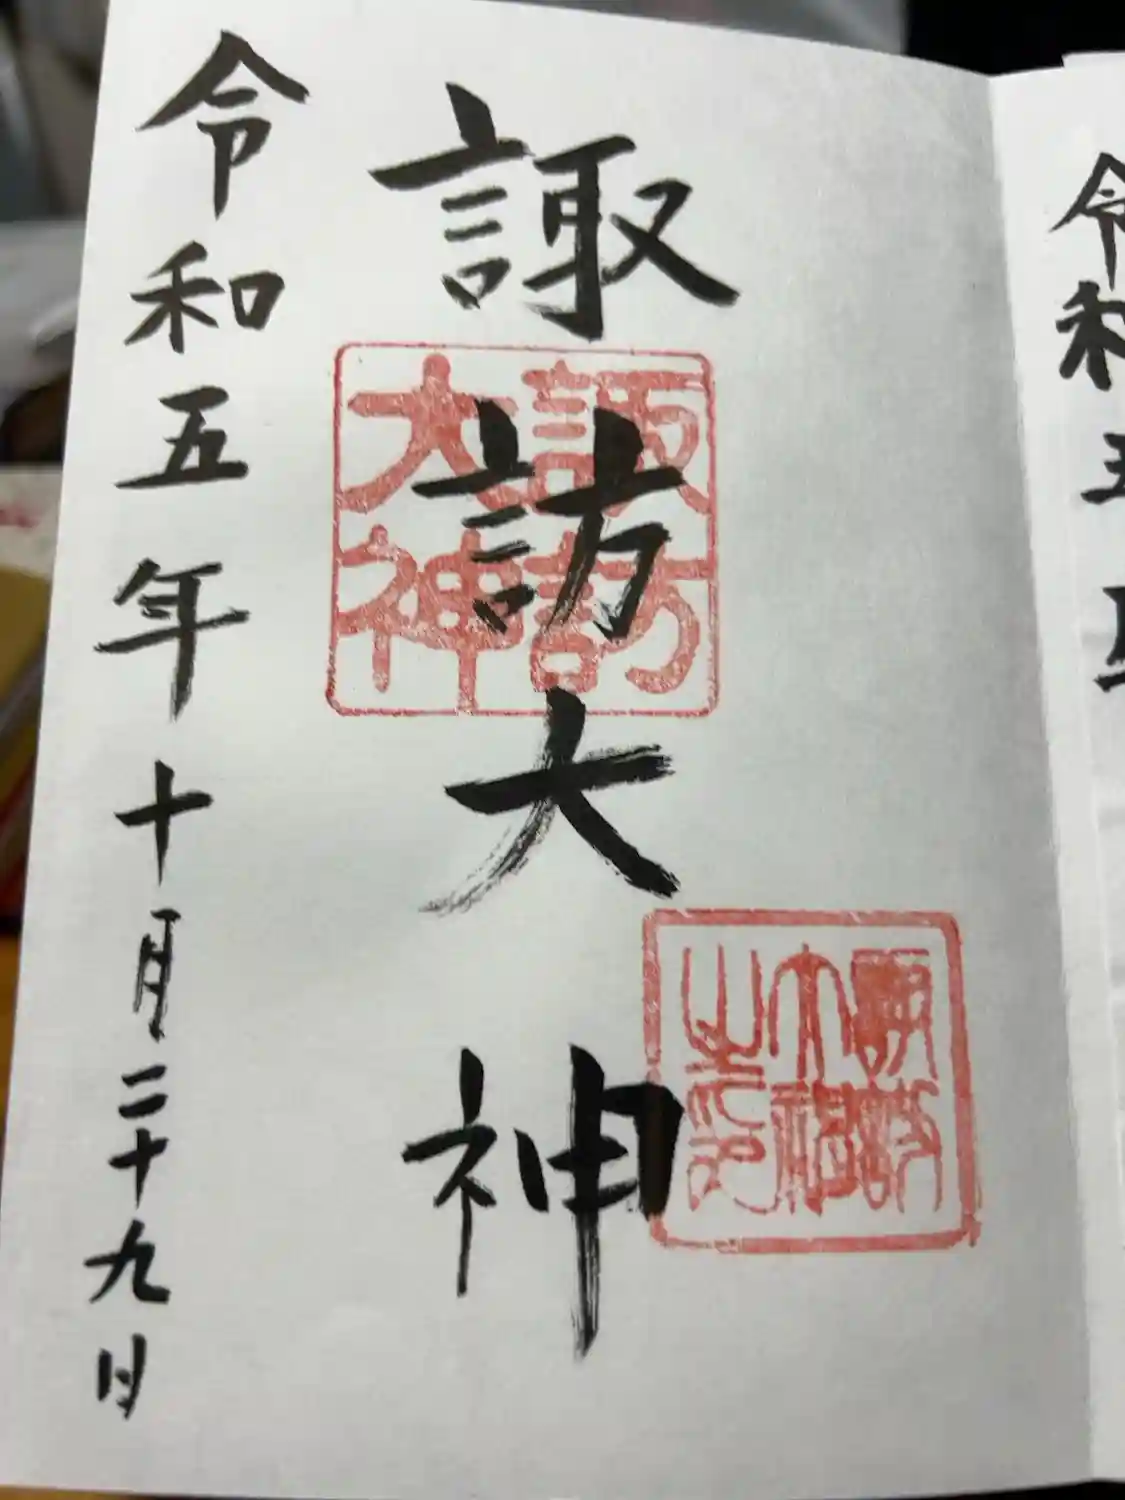 令和五
諏訪大神
諏訪大神
令和五年十月二十九日